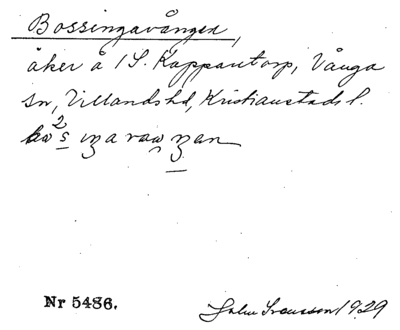 Bossingavången,
åker å 1 S. Kappautorp, Vånga
sn, Villands hd, Kristianstads l.
Nr 5486.
John Svensson 1929